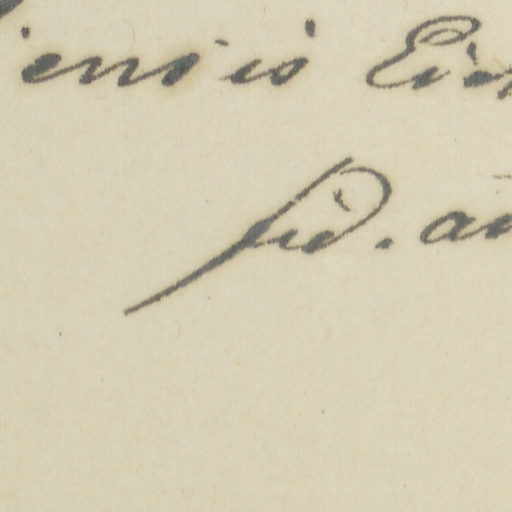 iensis Eic
fid. an